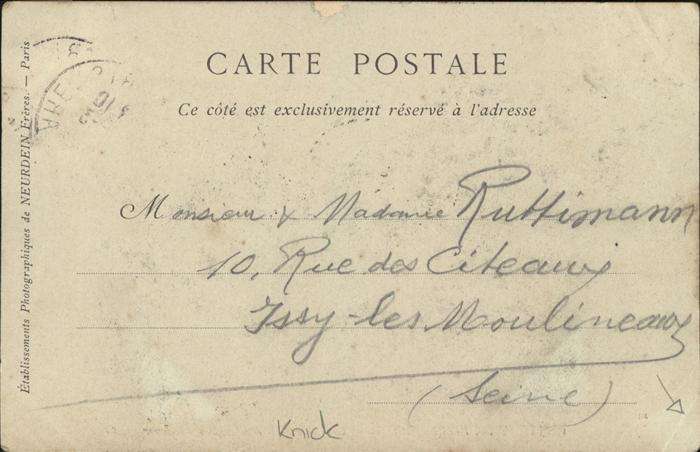 CARTE POSTALE
Ce côté est exclusivement réservé à l'adresse
Monsieur & Madame Ruttimann
10, Rue des Citeaux
Issy-les Moulineaux
(Seine)
Knick
Établissements Photographiques de NEURDEIN Frères. — Paris